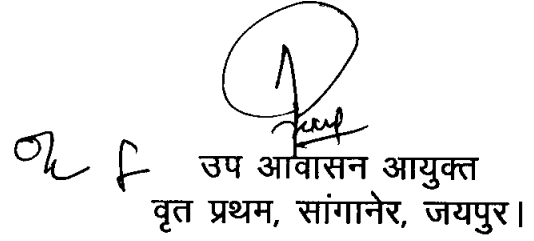 उप आवासन आयुक्त
वृत प्रथम, सांगानेर, जयपुर।